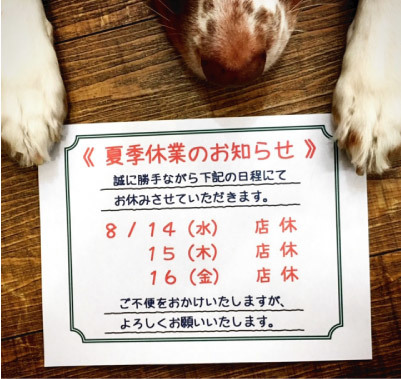 《 夏季休業のお知らせ 》
誠に勝手ながら下記の日程にて
お休みさせていただきます。
8 / 14（水） 店 休
15（木） 店 休
16（金） 店 休
ご不便をおかけいたしますが、
よろしくお願いいたします。